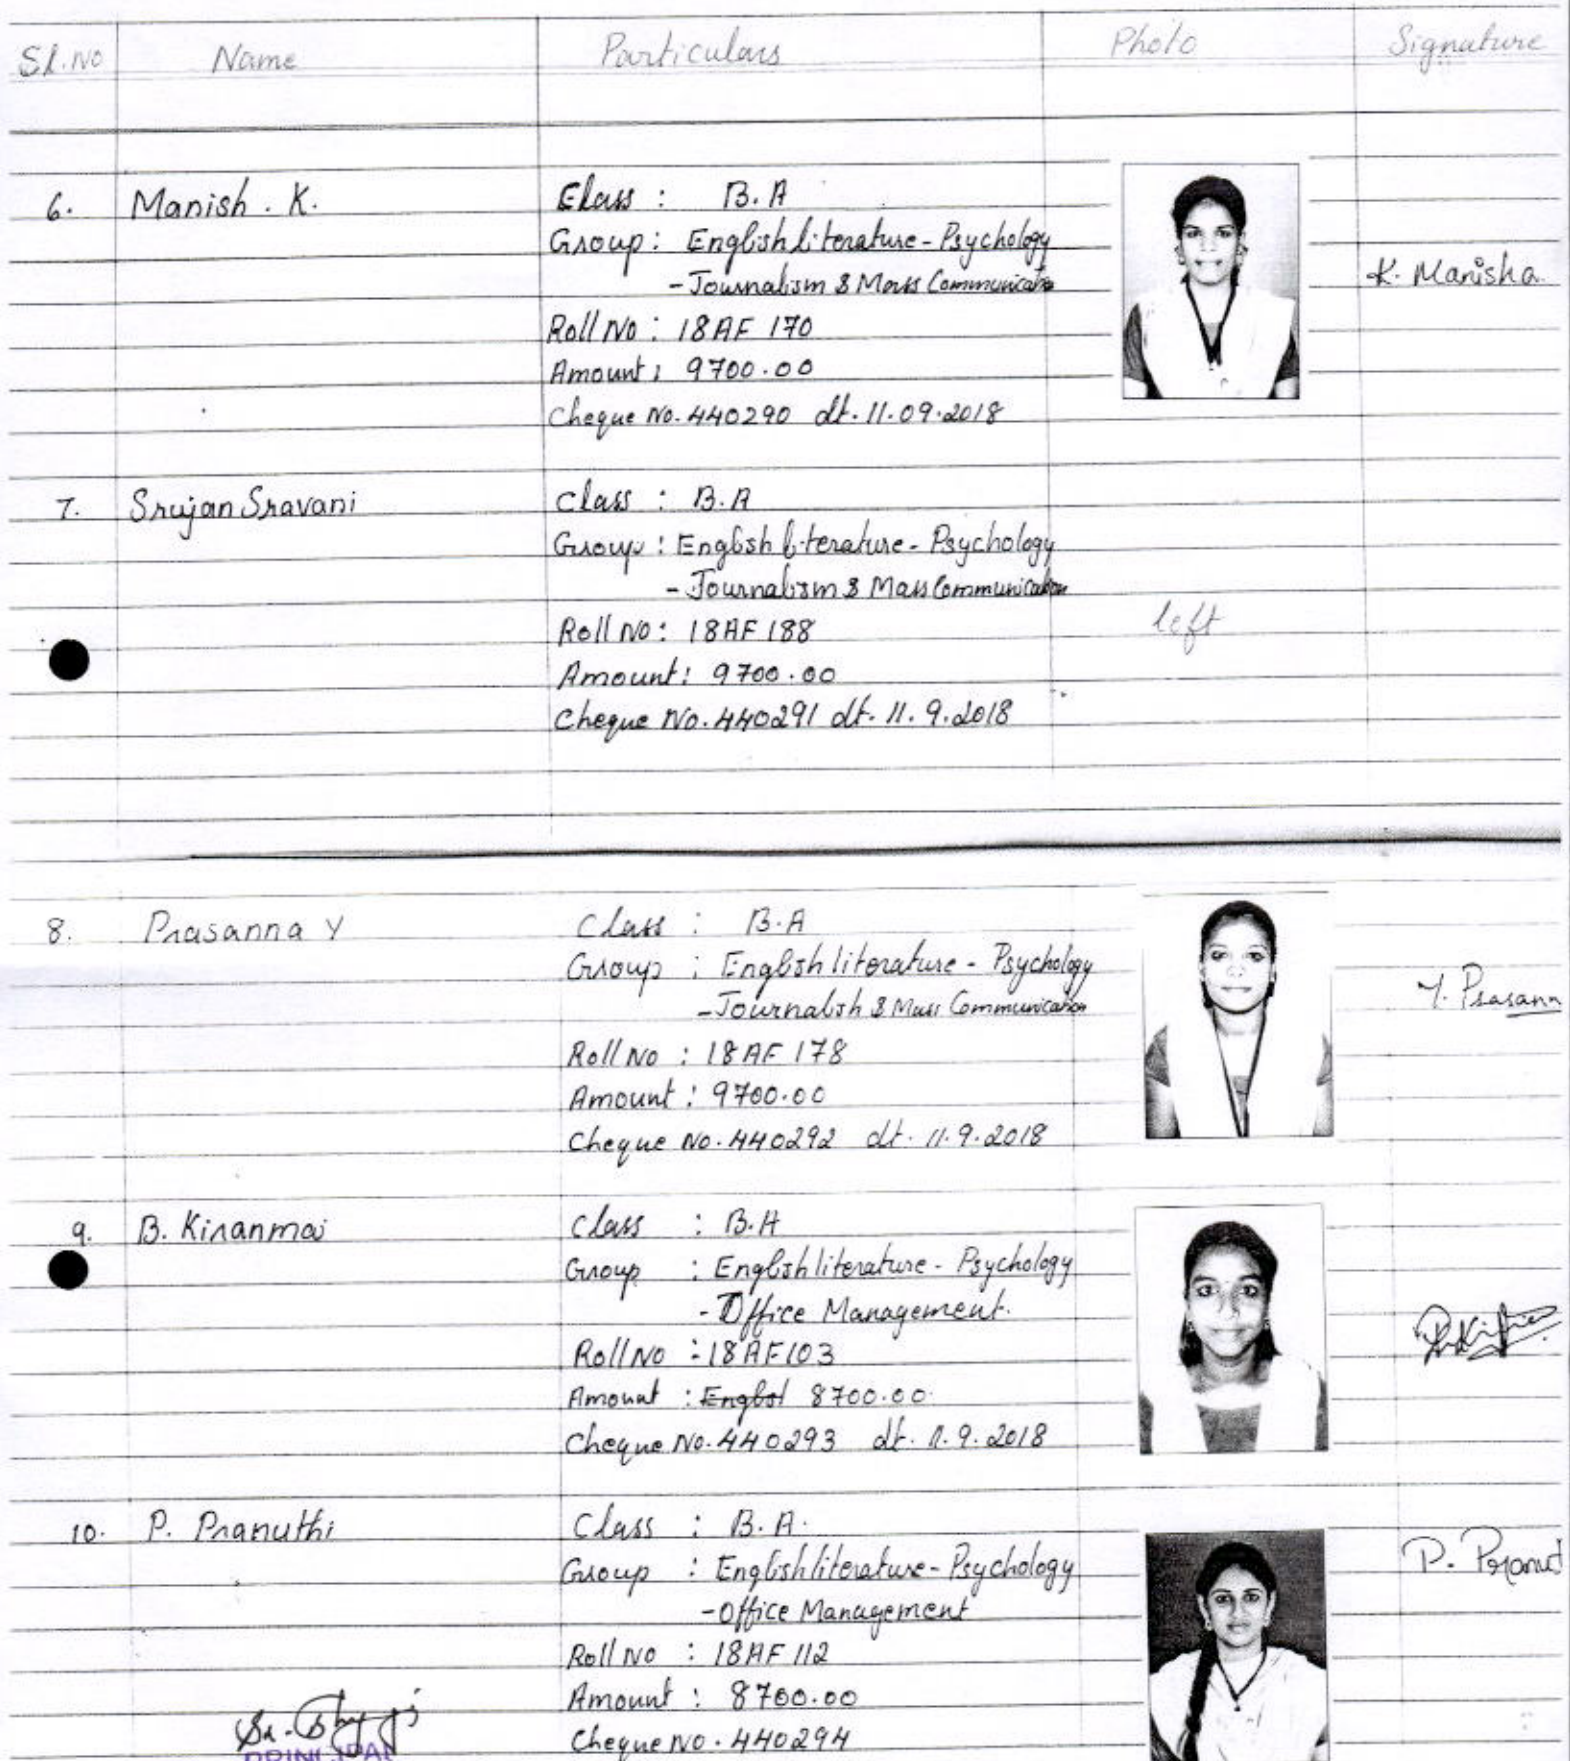 Sl.No Name Particulars Photo Signature
6. Manish . K. Class : B.A
Group : English literature - Psychology
- Journalism & Mass Communicatio
K. Manisha
Roll No : 18AF 170
Amount : 9700.00
Cheque No. 440290 dt. 11.09.2018
7. Srujan Sravani Class : B.A
Group : English literature - Psychology
- Journalism & Mass Communication
Roll No : 18AF 188 left
Amount : 9700.00
Cheque No. 440291 dt. 11.9.2018
8. Prasanna Y Class : B.A
Group : English literature - Psychology
- Journalish & Mass Communication
Y. Prasann
Roll No : 18AF 178
Amount : 9700.00
Cheque No. 440292 dt. 11.9.2018
9. B. Kiranmai Class : B.A
Group : English literature - Psychology
- Office Management.
Roll No : 18AF103
Amount : 8700.00
Cheque No. 440293 dt. 11.9.2018
10. P. Pranuthi Class : B.A.
Group : English literature - Psychology
- Office Management
P. Pranut
Roll No : 18AF 112
Amount : 8700.00
Cheque No. 440294
PRINCIPAL